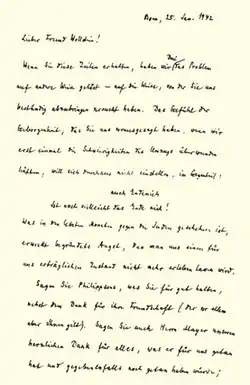 Bonn, 25. Jan. 1942
Lieber Freund Wollstein!
Wenn Sie diese Zeilen erhalten, haben wir Drei das Problem
auf andere Weise gelöst – auf die Weise, von der Sie uns
beständig abzubringen versucht haben. Das Gefühl der
Geborgenheit, das Sie uns vorausgesagt haben, wenn wir
erst einmal die Schwierigkeiten des Umzugs überwunden
hätten, will sich durchaus nicht einstellen, im Gegenteil:
auch Endenich
Ist noch vielleicht das Ende nich!
Was in den letzten Monaten gegen die Juden geschehen ist,
erweckt begründete Angst, dass man uns einen für
uns erträglichen Zustand nicht mehr erleben lassen wird.
Sagen Sie Philippsons, was Sie für gut halten,
nebst dem Dank für ihre Freundschaft (der vor allem
aber Ihnen gilt). Sagen Sie auch Herrn Mayer unseren
herzlichen Dank für alles, was er für uns getan
hat und gegebenenfalls noch getan haben würde;